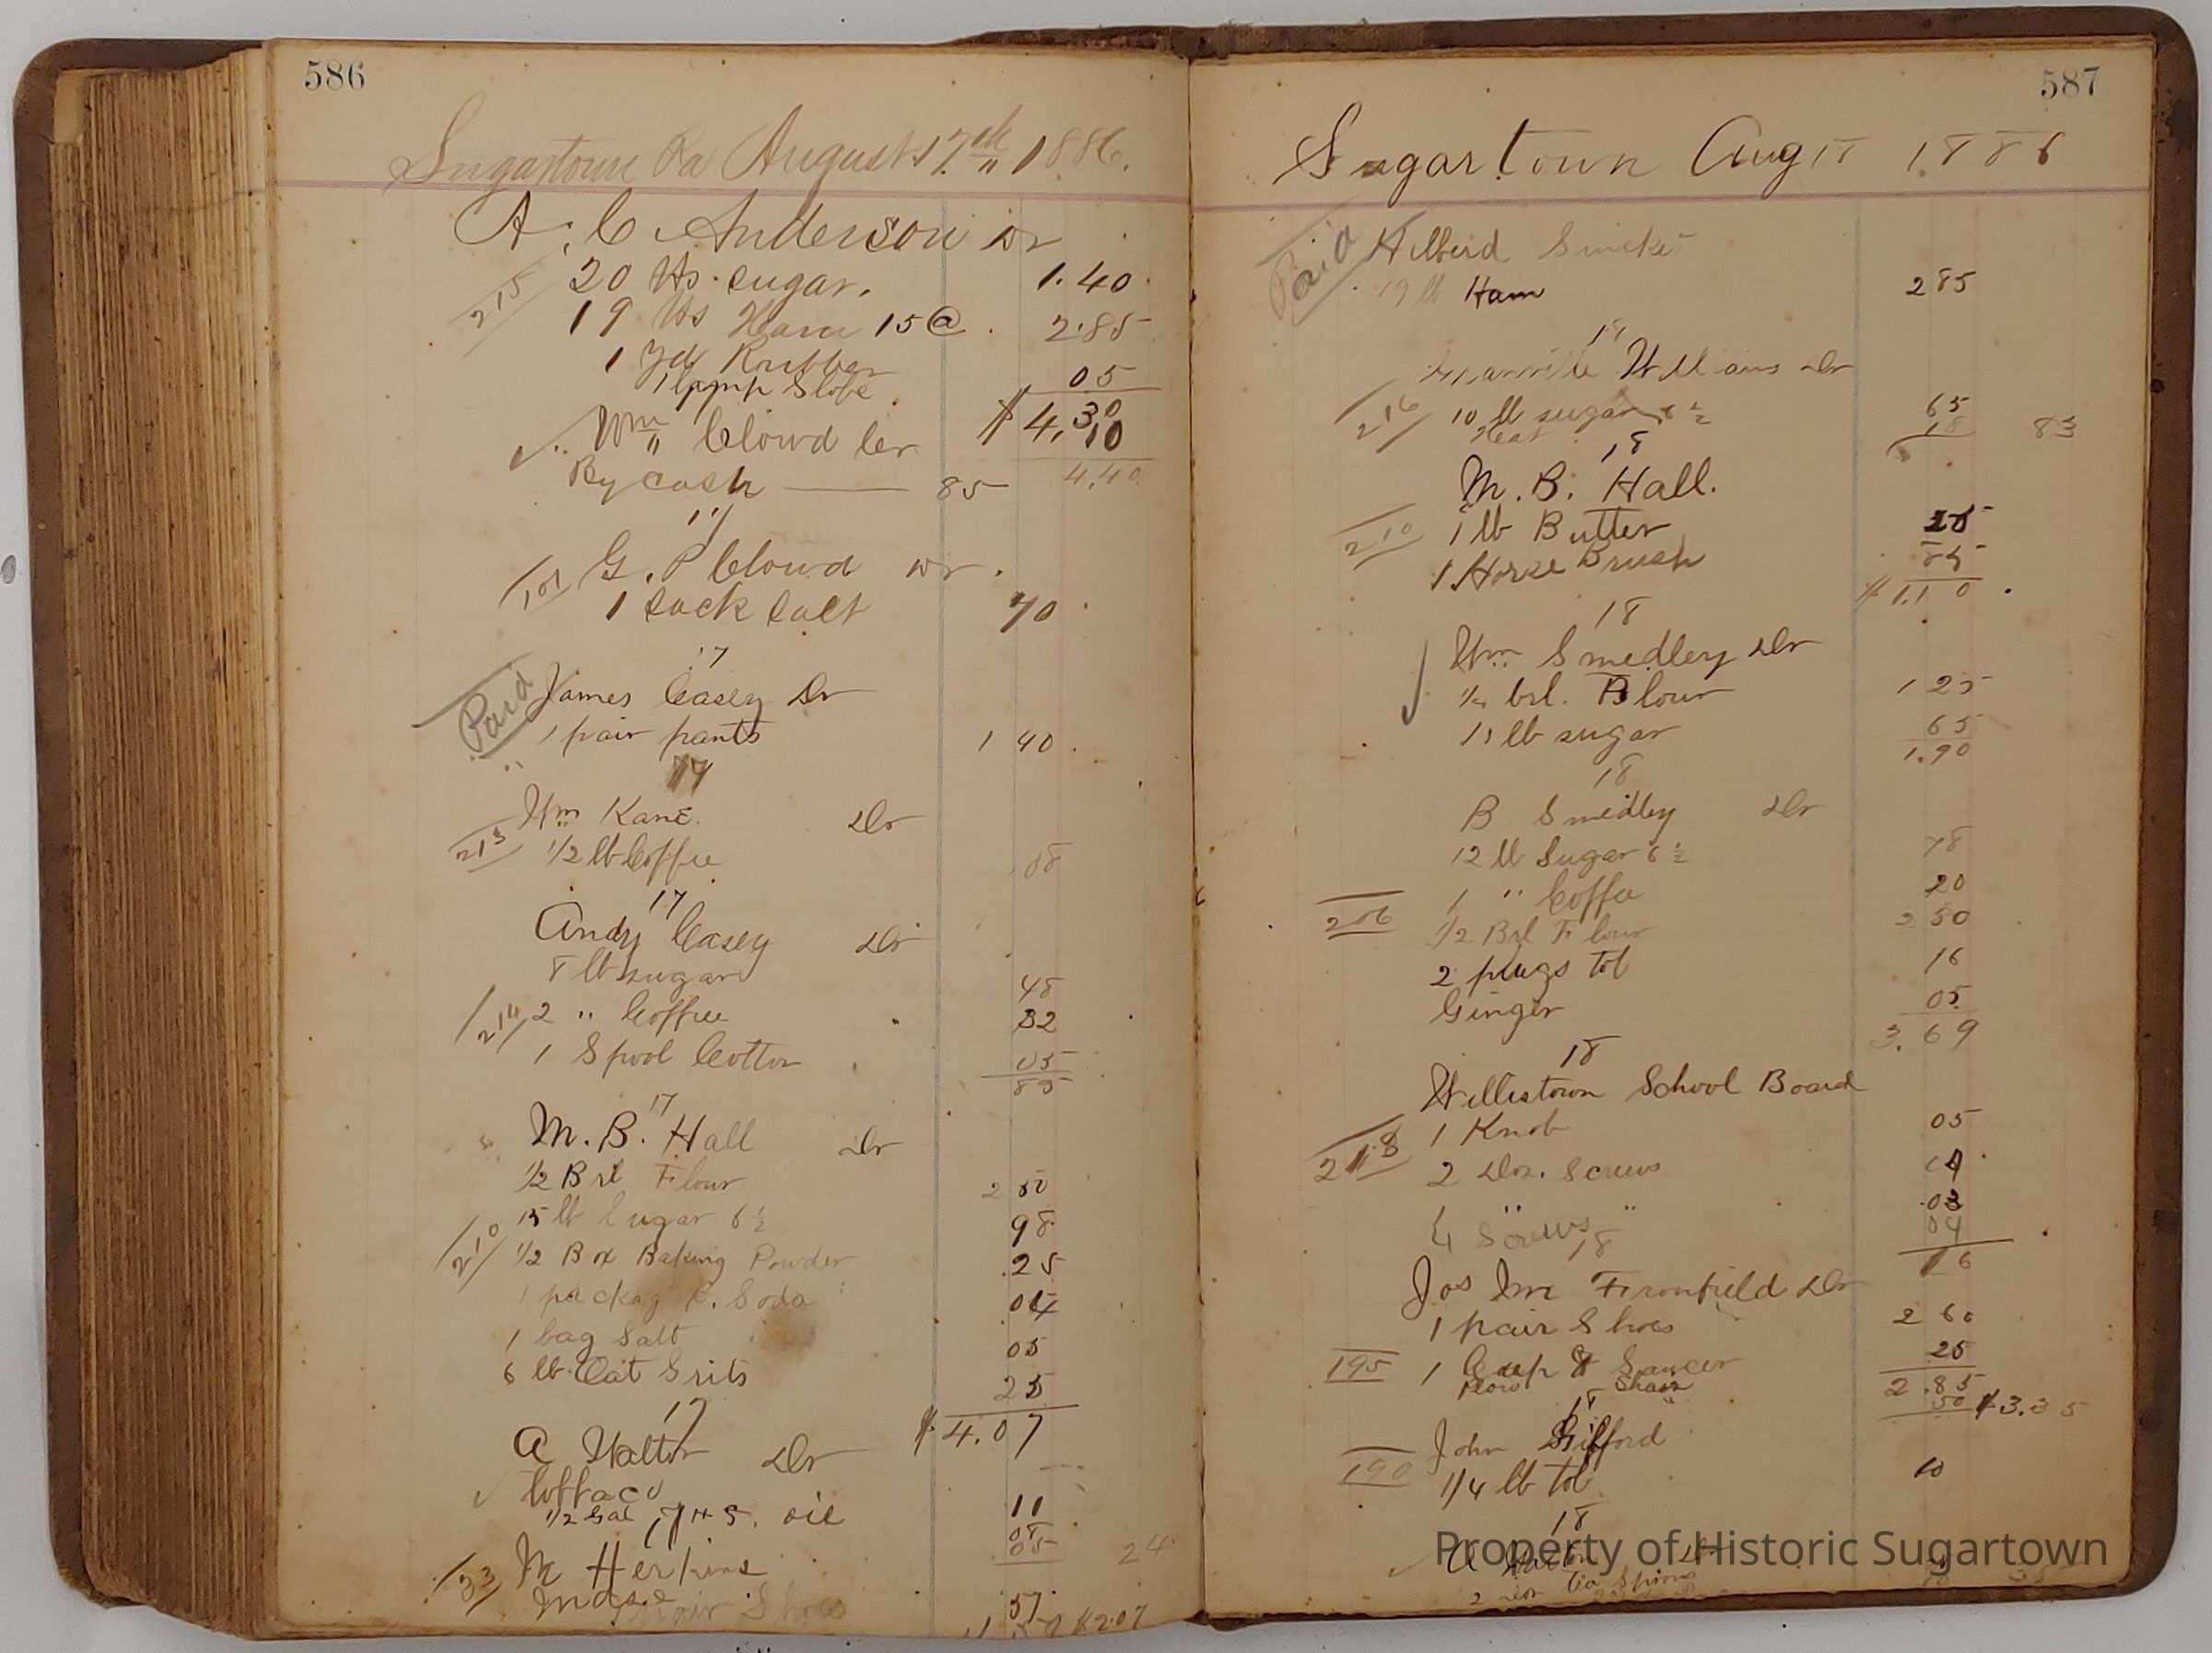 586
Sugartown Pa August 17th 1886.
A. C. Anderson Dr
215
20 lbs sugar. 1.40
19 lbs Ham 15@ 2.85
1 yd Rubber 05
1 Lamp Globe
$4,30
10
Wm Clowd Cr
4.40
By cash 85
17
101 G. P Clowd Dr.
1 sack salt 70
17
Paid James Casey Dr
1 pair pants 1 40
17
Wm Kane. Dr
213 1/2 lb Coffee 08
17
Andy Casey Dr
8 lb sugar 48
214 2 " Coffee 32
1 Spool Cotton 05
85
17
M. B. Hall Dr
1/2 Brl Flour 2 50
15 lb Sugar 6 1/2 98
210 1/2 Box Baking Powder 25
1 packag C. Soda 04
1 bag Salt 05
6 lb Oat Grits 25
$4.07
17
A Walton Dr
11
1/2 Gal oil 08
05 24
57
pair Shoes
$2.07
587
Sugartown Aug 18 1886
Paid
19 lb Ham 2 85
18
Williams Dr
216 10 lb sugar 6 1/2 65
18 83
18
M. B. Hall.
210 1 lb Butter 25
1 Horse Brush 85
$1.10
18
Wm Smedley Dr
1/4 brl. Flour 1 25
lb sugar 65
1.90
18
B Smedley Dr
12 lb Sugar 6 1/2 78
1 " Coffee 20
206 1/2 Brl Flour 2 50
2 plugs tob 16
Ginger 05
3.69
18
Willistown School Board
1 Knob 05
218 2 Doz. Screws 04
03
4 Screws " 04
16
18
Jos Fronfield Dr
1 pair Shoes 2 60
195 1 Cup & Saucer 25
2.85
Plow Share 50 $3.35
18
John Gifford
190 1/4 lb tob 10
18
A Walton Dr
Property of Historic Sugartown